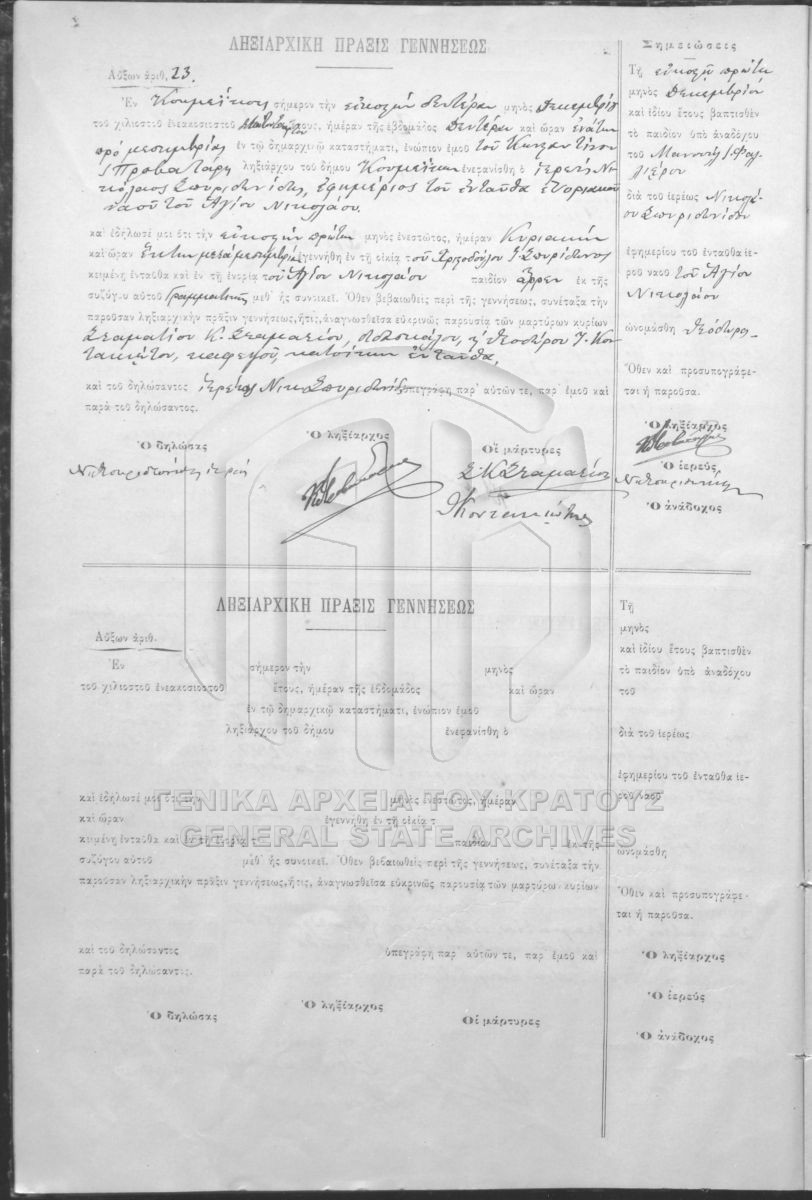 ΛΗΞΙΑΡΧΙΚΗ ΠΡΑΞΙΣ ΓΕΝΝΗΣΕΩΣ
Αὔξων ἀριθ. 23.
Ἐν σήμερον τὴν εἰκοστὴν δευτέραν μηνὸς Δεκεμβρίου
τοῦ χιλιοστοῦ ἐνεακοσιοστοῦ ἔτους, ἡμέραν τῆς ἑβδομάδος Δευτέραν καὶ ὥραν ἐνάτην
πρό μεσημβρίας ἐν τῷ δημαρχικῷ καταστήματι, ἐνώπιον ἐμοῦ τοῦ Κωνσταντίνου
Προβατάρη ληξιάρχου τοῦ δήμου ἐνεφανίσθη ὁ ἱερεὺς Νι-
κόλαος Σπυριδωνίδης, ἐφημέριος τοῦ ἐνταῦθα ἐνοριακοῦ
ναοῦ τοῦ Ἁγίου Νικολάου.
καὶ ἐδήλωσέ μοι ὅτι τὴν εἰκοστὴν πρώτην μηνὸς ἐνεστῶτος, ἡμέραν Κυριακὴν
καὶ ὥραν ἕκτην μετὰ μεσημβρίαν ἐγεννήθη ἐν τῇ οἰκίᾳ τοῦ Σπυρίδωνος
κειμένῃ ἐνταῦθα καὶ ἐν τῇ ἐνορίᾳ τοῦ Ἁγίου Νικολάου παιδίον ἄρρεν ἐκ τῆς
συζύγου αὐτοῦ Γραμματικῆς μεθ᾽ ἧς συνοικεῖ. Ὅθεν βεβαιωθεὶς περὶ τῆς γεννήσεως, συνέταξα τὴν
παροῦσαν ληξιαρχικὴν πρᾶξιν γεννήσεως, ἥτις, ἀναγνωσθεῖσα εὐκρινῶς παρουσίᾳ τῶν μαρτύρων κυρίων
Σταματίου Κ. Σταματίου, διδασκάλου, καὶ Θεοδώρου Ι. Κον-
τακιώτου, καφεπώλου, κατοίκων ἐνταῦθα,
καὶ τοῦ δηλώσαντος ἱερέως Νικ. Σπυριδωνίδου ὑπεγράφη παρ᾽ αὐτῶν τε, παρ᾽ ἐμοῦ καὶ
παρὰ τοῦ δηλώσαντος.
Ὁ δηλώσας
Ὁ ληξίαρχος
Οἱ μάρτυρες
Ν. Σπυριδωνίδης ἱερεύς
Σ. Κ. Σταματίου
Θ Κοντακιώτης
Σημειώσεις
Τῇ εἰκοστῇ πρώτῃ
μηνὸς Δεκεμβρίου
καὶ ἰδίου ἔτους βαπτισθὲν
τὸ παιδίον ὑπὸ ἀναδόχου
τοῦ Μανουὴλ
διὰ τοῦ ἱερέως Νικολά-
ου Σπυριδωνίδου
ἐφημερίου τοῦ ἐνταῦθα ἱε-
ροῦ ναοῦ τοῦ Ἁγίου
Νικολάου
ὠνομάσθη Θεόδωρος.
Ὅθεν καὶ προσυπογράφε-
ται ἡ παροῦσα.
Ὁ ληξίαρχος
Ὁ ἱερεὺς
Ν. Σπυριδωνίδης
Ὁ ἀνάδοχος
ΛΗΞΙΑΡΧΙΚΗ ΠΡΑΞΙΣ ΓΕΝΝΗΣΕΩΣ
Αὔξων ἀριθ.
Ἐν σήμερον τὴν μηνὸς
τοῦ χιλιοστοῦ ἐνεακοσιοστοῦ ἔτους, ἡμέραν τῆς ἑβδομάδος καὶ ὥραν
ἐν τῷ δημαρχικῷ καταστήματι, ἐνώπιον ἐμοῦ
ληξιάρχου τοῦ δήμου ἐνεφανίσθη ὁ
καὶ ἐδήλωσέ μοι ὅτι τὴν μηνὸς ἐνεστῶτος, ἡμέραν
καὶ ὥραν ἐγεννήθη ἐν τῇ οἰκίᾳ τ
κειμένῃ ἐνταῦθα καὶ ἐν τῇ ἐνορίᾳ τ παιδίον ἐκ τῆς
συζύγου αὐτοῦ μεθ᾽ ἧς συνοικεῖ. Ὅθεν βεβαιωθεὶς περὶ τῆς γεννήσεως, συνέταξα τὴν
παροῦσαν ληξιαρχικὴν πρᾶξιν γεννήσεως, ἥτις, ἀναγνωσθεῖσα εὐκρινῶς παρουσίᾳ τῶν μαρτύρων κυρίων
καὶ τοῦ δηλώσαντος ὑπεγράφη παρ᾽ αὐτῶν τε, παρ᾽ ἐμοῦ καὶ
παρὰ τοῦ δηλώσαντος.
Ὁ δηλώσας
Ὁ ληξίαρχος
Οἱ μάρτυρες
Τῇ
μηνὸς
καὶ ἰδίου ἔτους βαπτισθὲν
τὸ παιδίον ὑπὸ ἀναδόχου
τοῦ
διὰ τοῦ ἱερέως
ἐφημερίου τοῦ ἐνταῦθα ἱε-
ροῦ ναοῦ
ὠνομάσθη
Ὅθεν καὶ προσυπογράφε-
ται ἡ παροῦσα.
Ὁ ληξίαρχος
Ὁ ἱερεὺς
Ὁ ἀνάδοχος
ΓΕΝΙΚΑ ΑΡΧΕΙΑ ΤΟΥ ΚΡΑΤΟΥΣ
GENERAL STATE ARCHIVES